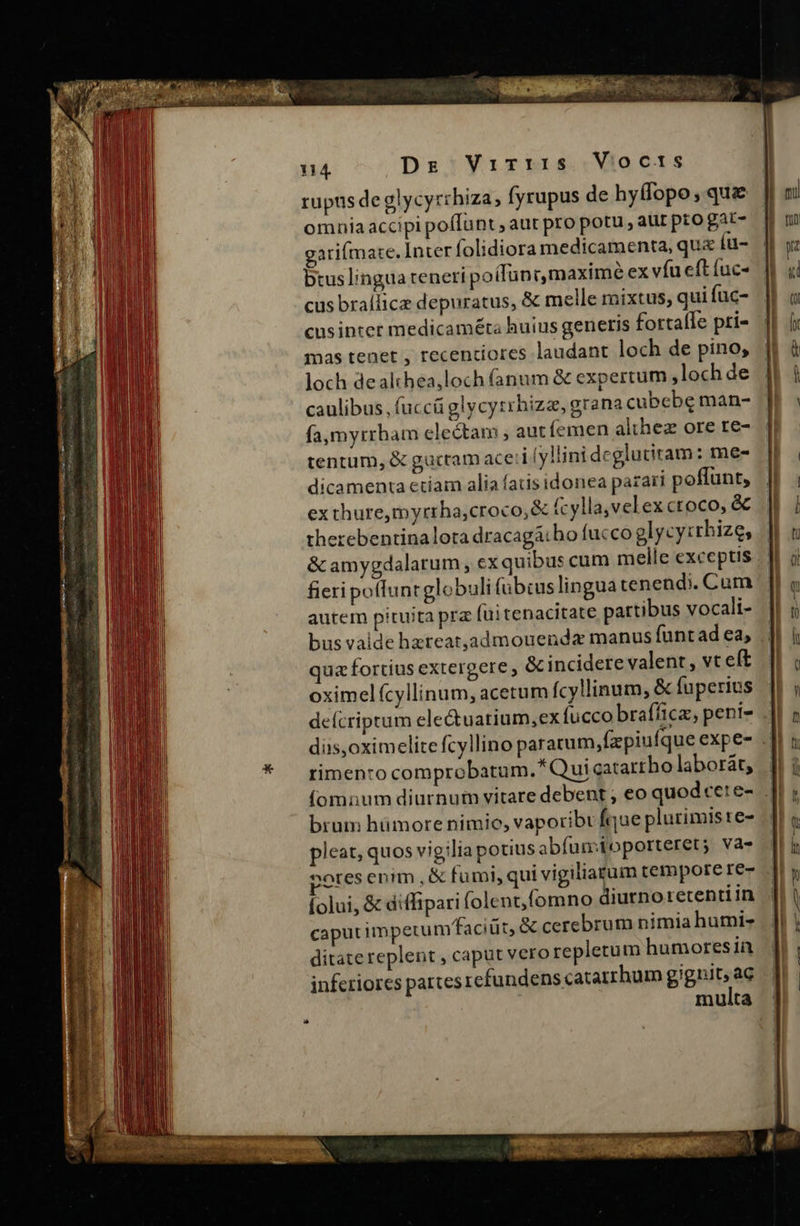 114 De Vitiis Vocis
rupus de glycyrrhiza, ſyrupus de hyſſopo, quæ
omnia accipi poſſunt, aut pro potu, aut pro gar-
gariſmate. Inter ſolidiora medicamenta, quæ ſu-
btus lingua teneri poſſunt, maximè ex vſu eſt ſuc-
cus braſſicæ depuratus, & melle mixtus, qui ſuc-
cus inter medicamēta huius generis fortaſſe pri-
mas tenet, recentiores laudant loch de pino,
loch de althea, loch ſanum & expertum, loch de
caulibus, ſuccū glycyrrhizæ, grana cubebę man-
ſa, myrrham electam, aut ſemen altheæ ore re-
tentum, & guttam aceti ſyllini deglutitam: me-
dicamenta etiam alia ſatis idonea parari poſſunt,
ex thure, myrrha, croco, & ſcylla, vel ex croco, &
therebentina lota dracagātho ſucco glycyrrhizę,
& amygdalarum, ex quibus cum melle exceptis
fieri poſſunt globuli ſubtus lingua tenendi. Cum
autem pituita præ ſui tenacitate partibus vocali-
bus valde hæreat, admouendæ manus ſunt ad ea,
quæ fortius extergere, & incidere valent, vt eſt
oximel ſcyllinum, acetum ſcyllinum, & ſuperius
deſcriptum electuatium, ex ſucco braſſicæ, peni-
diis, oximelite ſcyllino paratum, ſæpiuſque expe-
* rimento comprobatum. * Qui catarrho laborāt,
ſomnum diurnum vitare debent, eo quod cere-
brum humore nimio, vaporibuſque plurimis re-
pleat, quos vigilia potius abſumi oporteret; va-
pores enim, & fumi, qui vigiliarum tempore re-
ſolui, & diſſipari ſolent, ſomno diurno retenti in
caput impetum faciūt, & cerebrum nimia humi-
ditate replent, caput vero repletum humores in
inferiores partes refundens catarrhum gignit, ac
multa